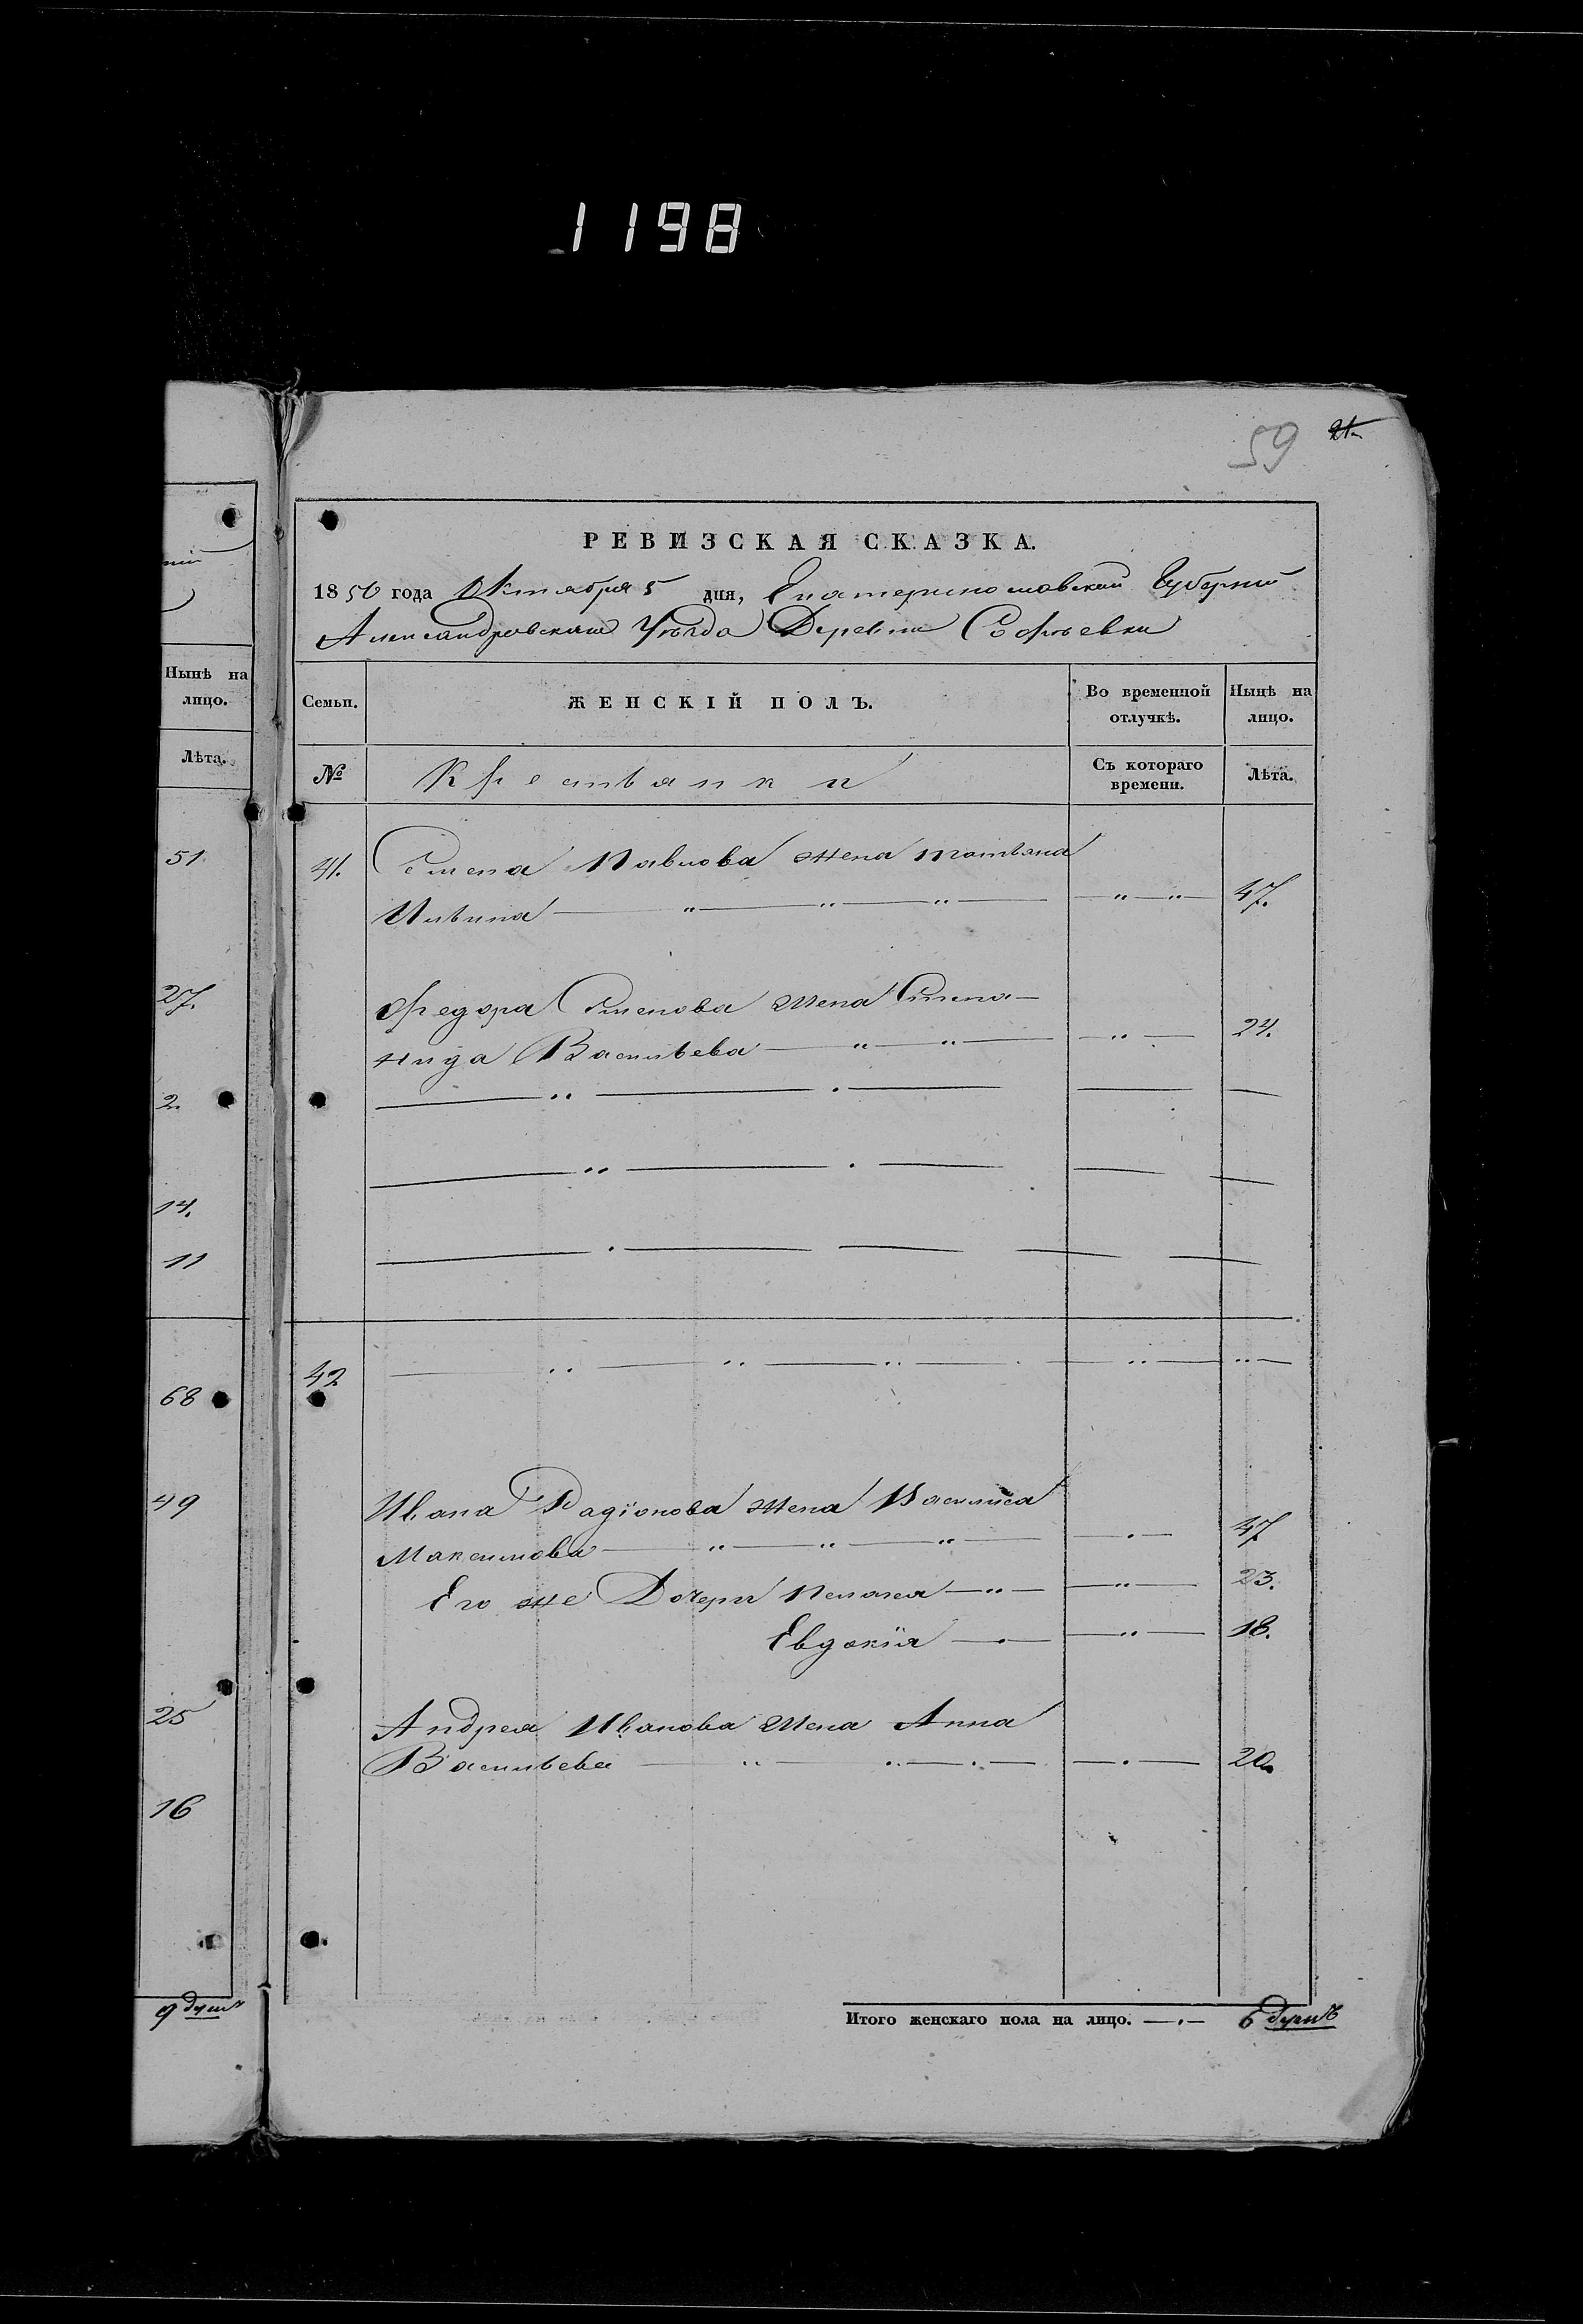 1198
59
21
РЕВИЗСКАЯ СКАЗКА.
1850 года Октября 5 дня, Екатеринославской Губерніи
Александровскаго Уѣзда Деревни Софьевки
Нынѣ на лицо.
Лѣта.
Семьи.
ЖЕНСКІЙ ПОЛЪ.
Во временной отлучкѣ.
Нынѣ на лицо.
№
Крестьянки
Съ котораго времени.
Лѣта.
51
27.
2.
14.
11
68
49
25
16
9 душъ
41. Семена Павлова жена Татьяна
Ильина — „ — „ — „ — „ — „ — 47.
Федора Семенова жена Степа-
нида Васильева — „ — „ — „ — 24.
42
Ивана Радіонова жена Василиса
Максимова — „ — „ — „ — 47
Его же Дочери Пелагея — „ — „ — 23.
Евдокія — „ — 18.
Андрея Иванова жена Анна
Васильева — „ — „ — 20
Итого женскаго пола на лицо. — 6 душъ